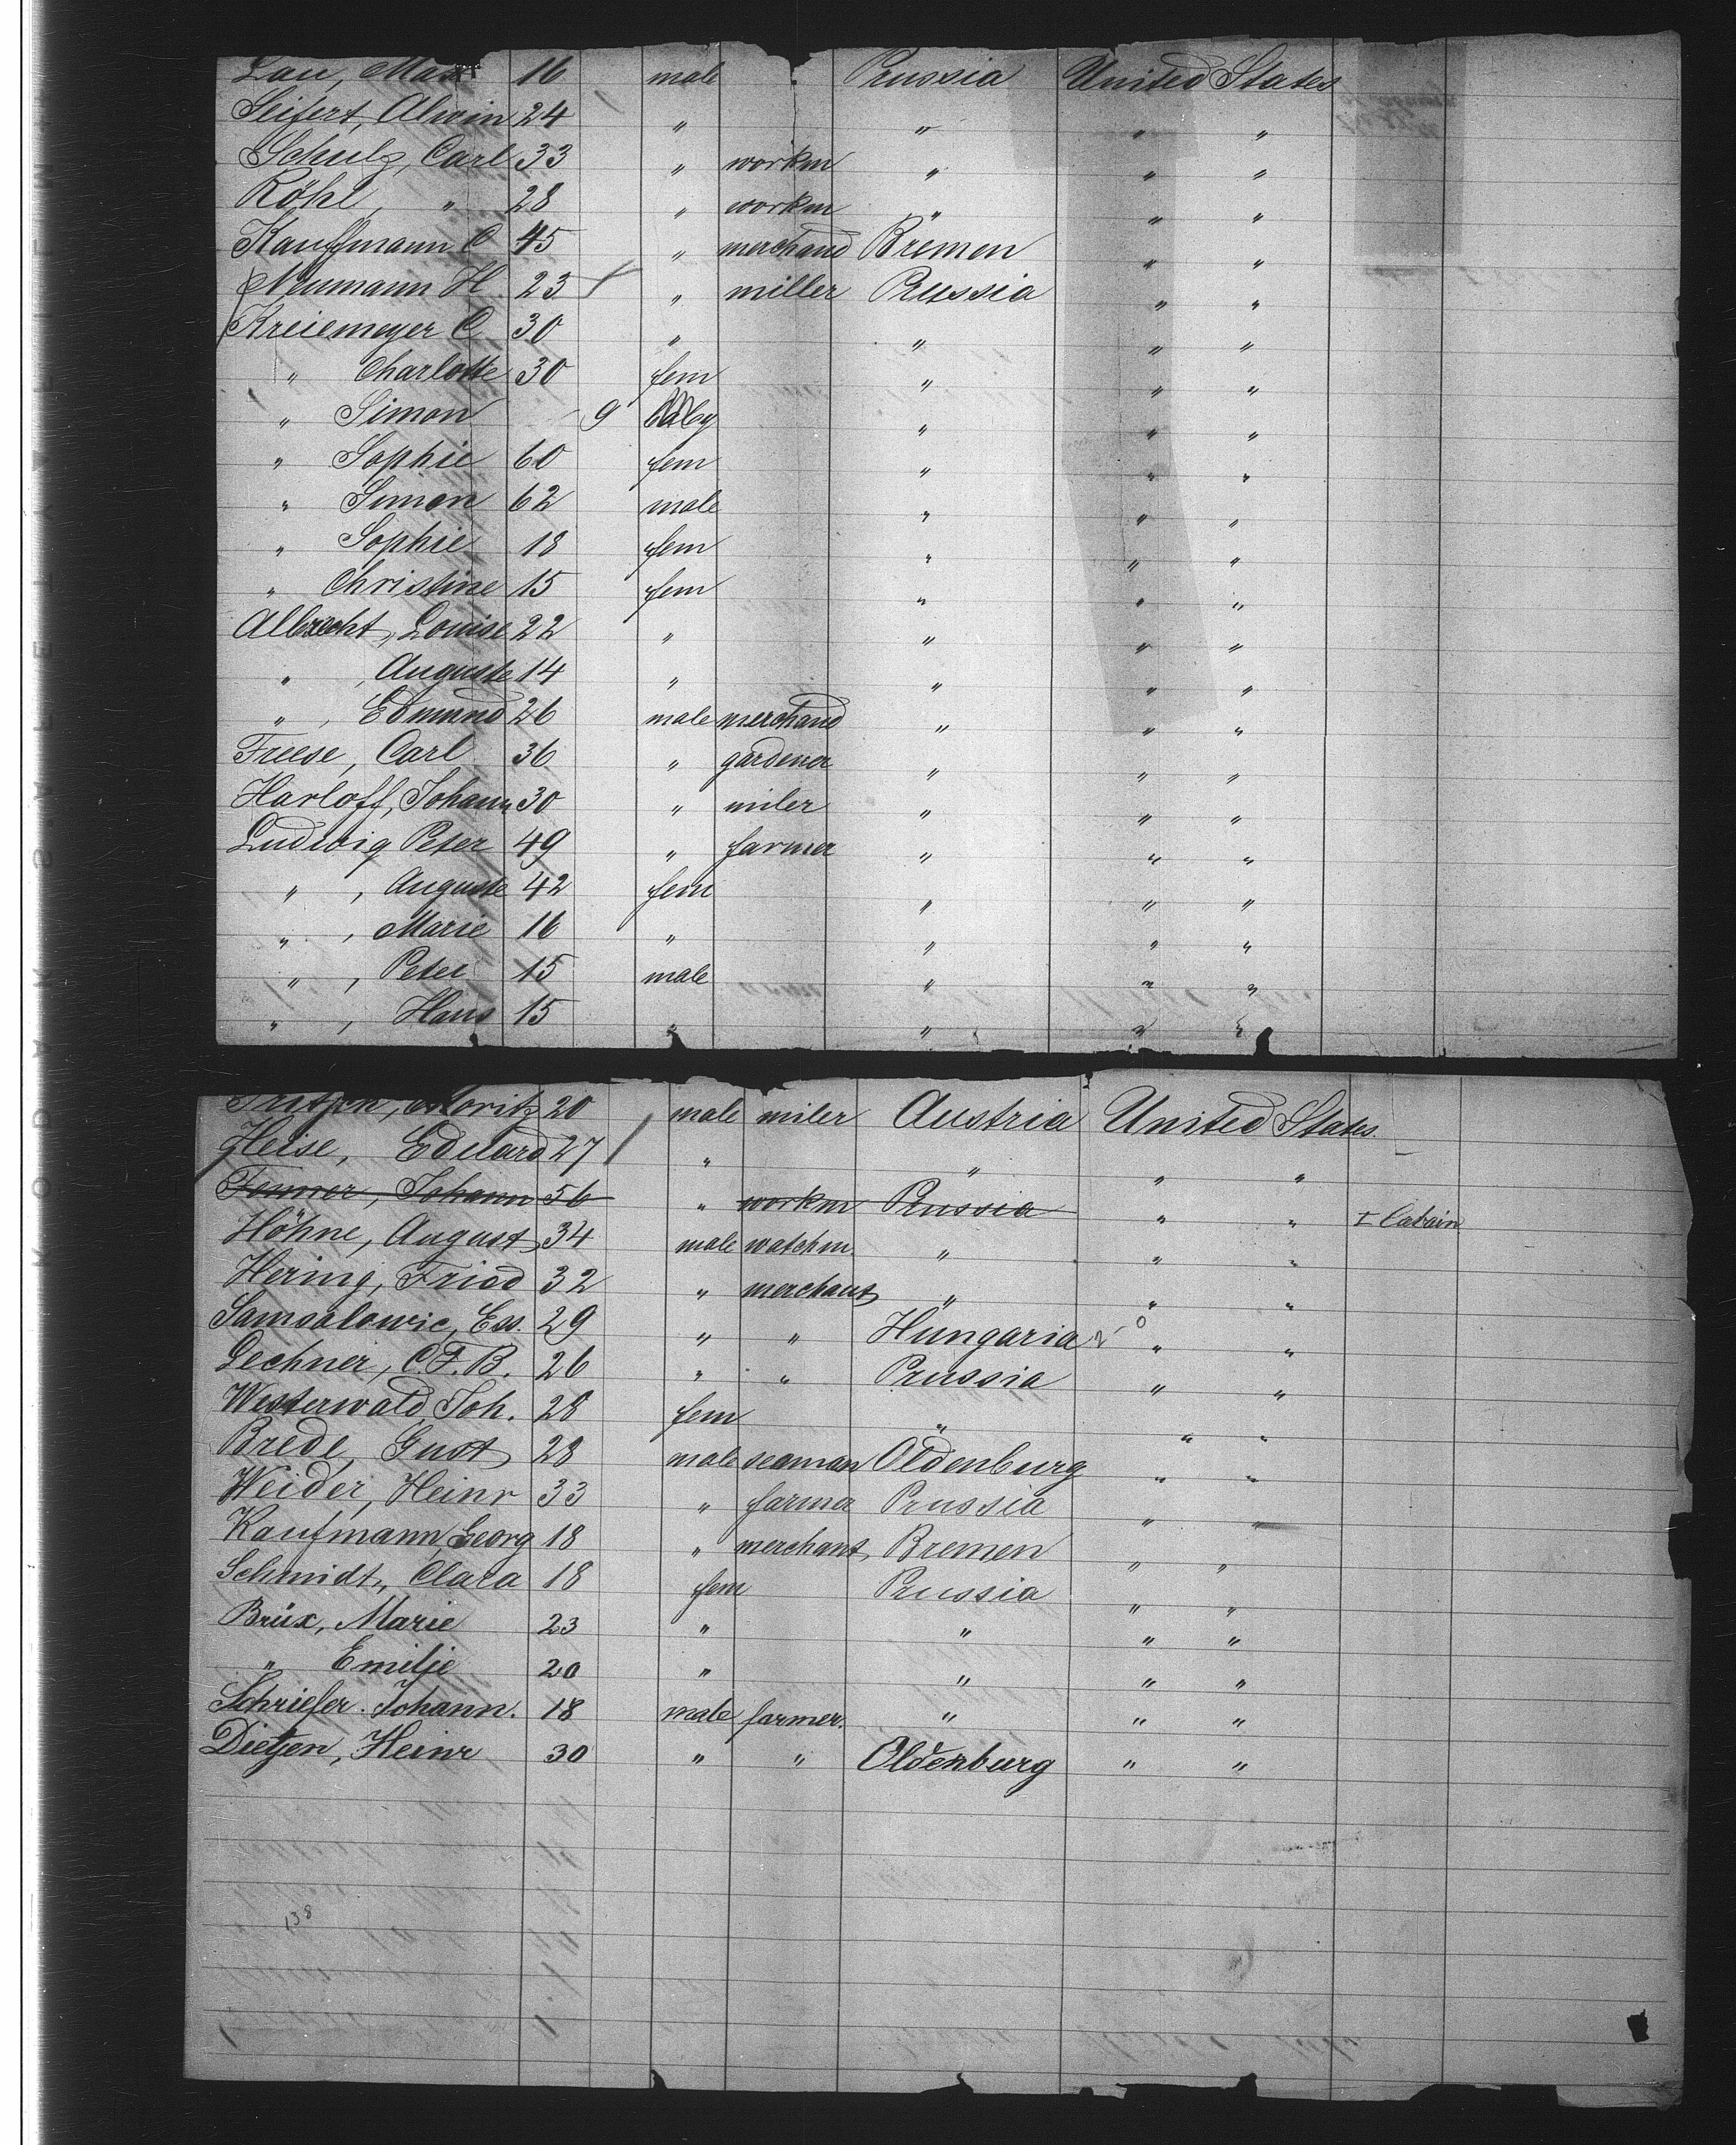 Lau, Max 16 male Prussia United States
Seifert, Alwin 24 " " " "
Schulz, Carl 33 " workm " " "
Röhl, " 28 " workm " " "
Kauffmann C 45 " merchand Bremen " "
Neumann H. 23 " miller Prussia " "
Kreiemeyer C 30 " " " "
" Charlotte 30 fem " " "
" Simon 9 baby " " "
" Sophie 60 fem " " "
" Simon 62 male " " "
" Sophie 18 fem " " "
" Christine 15 fem " " "
Albrecht, Louise 22 " " " "
" , Auguste 14 " " " "
" , Edmund 26 male merchand " " "
Freese, Carl 36 " gardener " " "
Harloff, Johann 30 " miler " " "
Ludwig Peter 49 " farmer " " "
" , Auguste 42 fem " " "
" , Marie 16 " " " "
" , Peter 15 male " " "
" , Hans 15 " " " "
Moritz 20 male miler Austria United States.
Heise, Eduard 27 " " " "
Fenner, Johann 56 " workm Prussia " "
Höhne, August 34 male watchm. " " "
Hering, Fried 32 " merchant " " "
Samsalowic, Ess. 29 " " Hungaria " "
Lechner, C.F.B. 26 " " Prussia " "
Westerwald, Joh. 28 fem " " "
Brede, Gust 28 male seaman Oldenburg " "
Weider, Heinr 33 " farmer Prussia " "
Kaufmann, Georg 18 " merchant Bremen " "
Schmidt, Clara 18 fem Prussia " "
Brüx, Marie 23 " " " "
" Emilie 20 " " " "
Schriefer. Johann. 18 male farmer. " " "
Dietjen, Heinr 30 " " Oldenburg " "
138